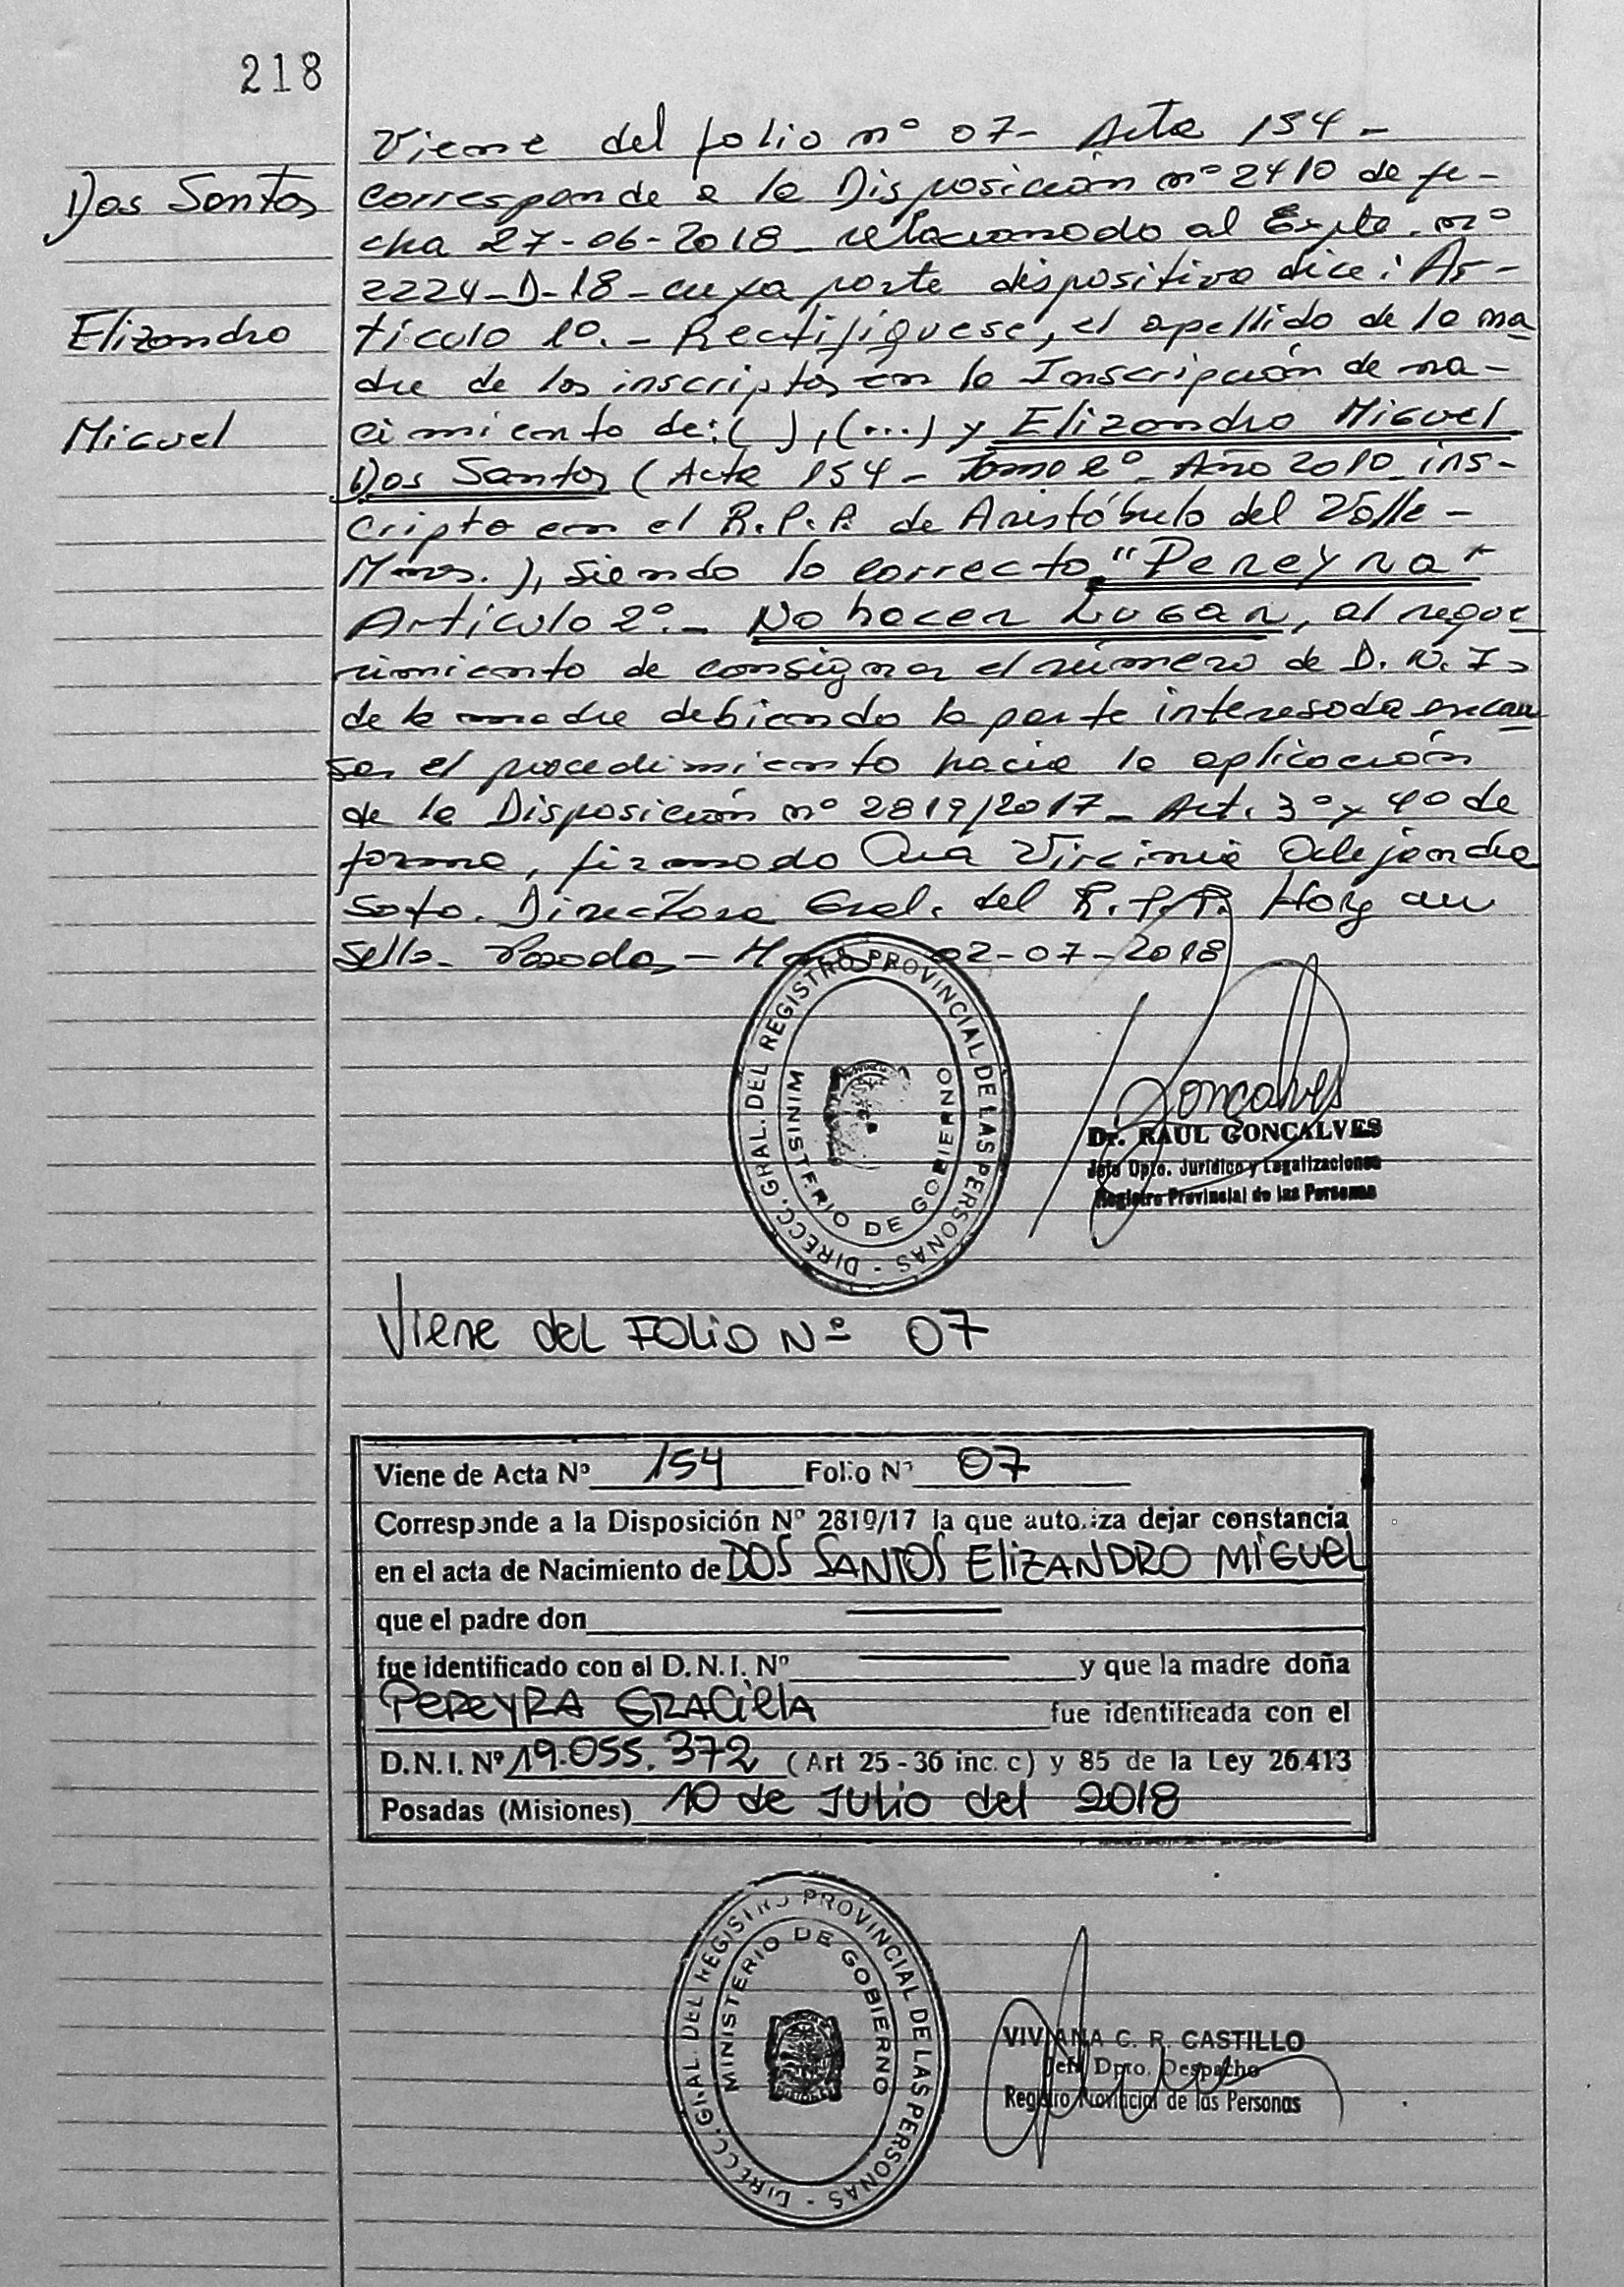 218
Dos Santos
Elizandro
Miguel
Viene del folio nº 07- Acta 154-
corresponde a la Disposición nº 2410 de fe-
cha 27-06-2018 relacionado al Expte. nº
2224-D-18- cuya parte dispositiva dice: Ar-
tículo 1º.- Rectifíquese, el apellido de la ma
dre de los inscriptos en la Inscripción de na-
cimiento de: ( ), (...) y Elizandro Miguel
Dos Santos (Acta 154- Tomo 2º- Año 2010 ins-
cripto en el R.P.P. de Aristóbulo del Valle-
Mnes.), siendo lo correcto "Pereyra"
Artículo 2º.- No hacer Lugar, al reque
rimiento de consignar el número de D.N.I.
de la madre debiendo la parte interesada encau
sar el procedimiento hacia la aplicación
de la Disposición nº 2819/2017- Art. 3º y 4º de
forma, firmado Ana Virginia Alejandra
Soto. Directora Gral. del R.P.P. Hay un
sello- Posadas- 02-07-2018
DIRECC. GRAL. DEL REGISTRO PROVINCIAL DE LAS PERSONAS -
MINISTERIO DE GOBIERNO
Goncalves
Dr. RAUL GONCALVES
Jefe Dpto. Jurídico y Legalizaciones
Registro Provincial de las Personas
Viene del FOLIO Nº 07
Viene de Acta Nº 154 Folio Nº 07
Corresponde a la Disposición Nº 2819/17 la que autoriza dejar constancia
en el acta de Nacimiento de DOS SANTOS ELIZANDRO MIGUEL
que el padre don
fue identificado con el D.N.I. Nº y que la madre doña
PEREYRA GRACIELA fue identificada con el
D.N.I. Nº 19.055.372 (Art 25-36 inc. c) y 85 de la Ley 26.413
Posadas (Misiones) 10 de Julio del 2018
DIRECC. GRAL. DEL REGISTRO PROVINCIAL DE LAS PERSONAS -
MINISTERIO DE GOBIERNO
VIVIANA C. R. CASTILLO
Jefa Dpto. Despacho
Registro Provincial de las Personas